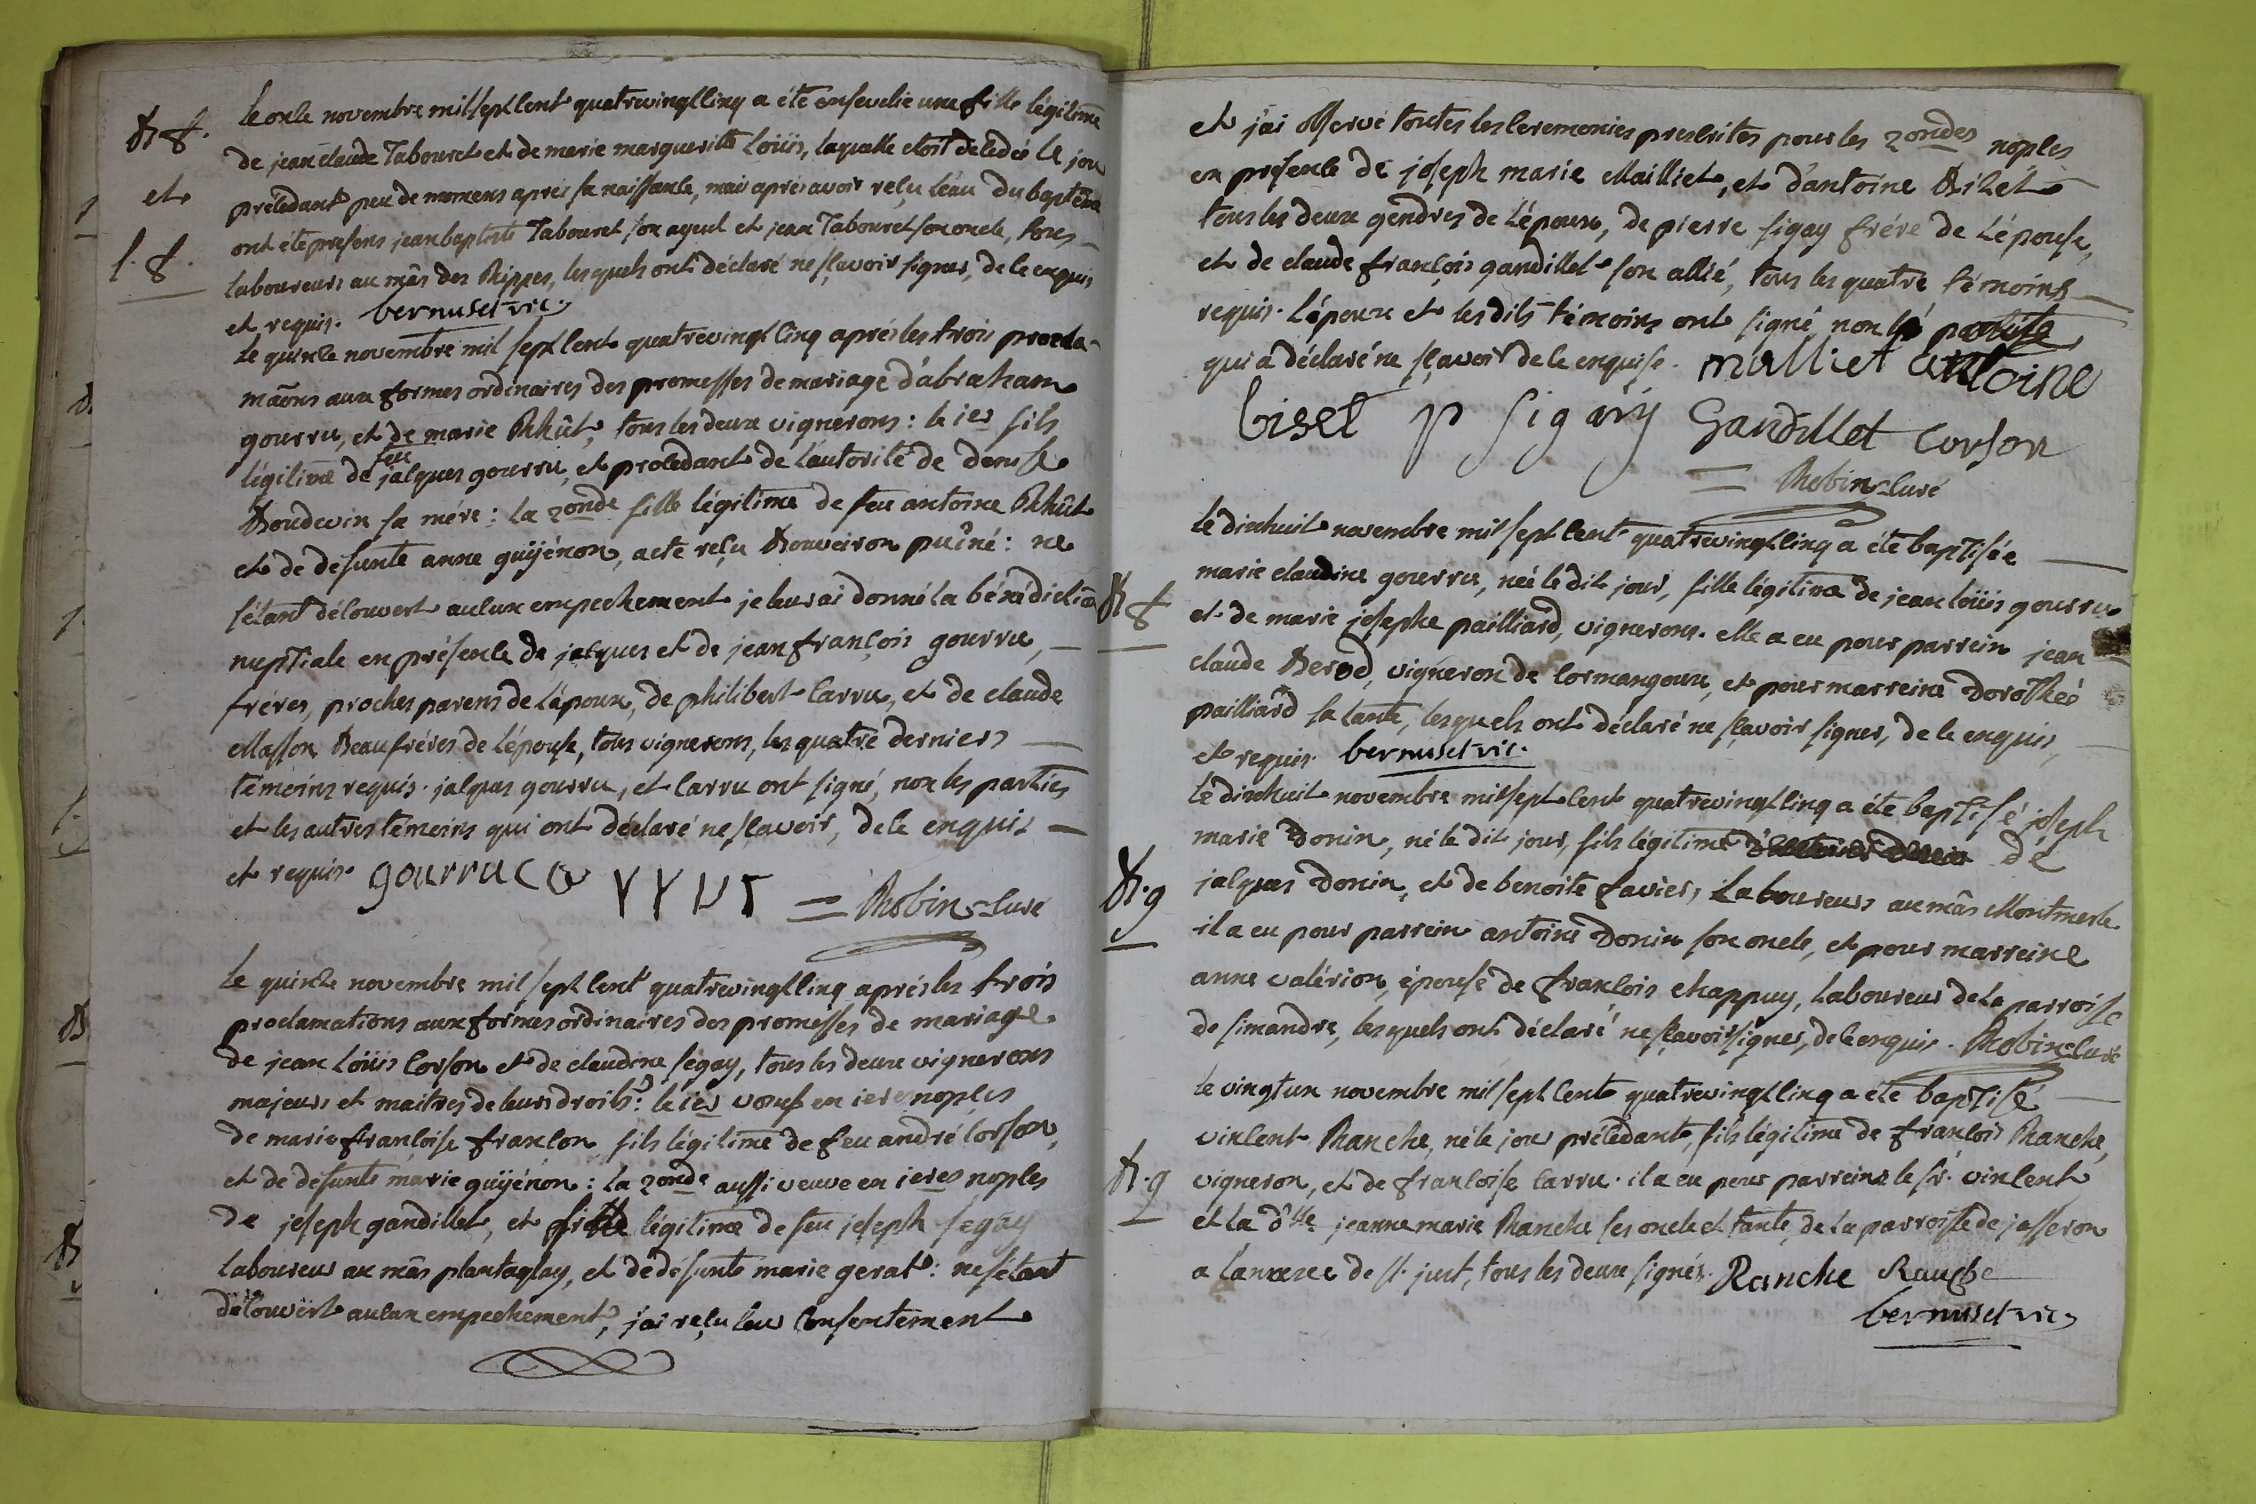 B f.
et
S. f.
le onze novembre mil sept cent quatrevingt cinq a été ensevelie une fille légitime
de jean claude Tabouret et de marie margueritte Loüis, laquelle etoit décedeé le jour
précédant peu de momens aprés sa naissance, mais aprés avoir reçu l'éau du baptême
ont été presens jean baptiste Tabouret son ayeul et jean Tabouret son oncle, tous
laboureurs au mâs des Rippes, lesquels ont déclaré ne sçavoir signer, de ce enquis
et requis. bernuset vic.
le quinze novembre mil sept cent quatrevingt cinq aprés les trois procla-
mãons aux formes ordinaires des promesses de mariage d'abraham
gourru, et de marie Rhût, tous les deux vignerons: le 1er fils
légitime de feu jacques gourru, et procedant de l'autorité de denise
Boudevin sa mére: la 2onde fille légitime de feu antoine Rhût
et de defunte anne guÿénon, acte reçu Bouveiron puîné: ne
s'étant découvert aucun empechement je leur ai donné la bénédiction
nuptiale en présence de jacques et de jean françois gourru,
fréres, proches parens de l'époux, de philibert Carru, et de claude
Masson Beaufréres de l'épouse, tous vignerons, les quatre derniers
témoins requis. jacques gourru, et Carru ont signé, non les parties
et les autres témoins qui ont déclaré ne sçavoir, de ce enquis
et requis. gourru c a
= Robin curé
le quinze novembre mil sept cent quatrevingt cinq aprés les trois
proclamations aux formes ordinaires des promesses de mariage
de jean Loüis Corson et de claudine segay, tous les deux vignerons
majeurs et maitres de leurs droits: le 1er veuf en 1eres noples
de marie françoise françon fils légitime de feu andré Corson,
et de defunte marie guÿénon: la 2onde aussi veuve en 1eres noples
de joseph gandillet, et fille légitime de feu joseph segay
laboureur au mâs plantaglay, et de défunte marie gerat: ne s'étant
découvert aucun empechement, j'ai reçu leur consentement
et j'ai observé toutes les ceremonies prescrites pour les 2ondes noples
en présence de joseph marie Mailliet, et d'antoine Bizet
tous les deux gendres de l'époux, de pierre sigay frére de l'épouse,
et de claude françois gandillet son allié, tous les quatre témoins
requis. l'époux et lesdits témoins ont signé, non la partie
qui a déclaré ne sçavoir de ce enquise. malliet antoine
biset p sigay Gandillet corson
= Robin curé
B f
le dixhuit novembre mil sept cent quatrevingt cinq a été baptisée
marie claudine gourru, neé le dit jour, fille légitime de jean loüis gourru
et de marie josephe pailliard, vignerons. elle a eu pour parrein jean
claude Berod, vigneron de Cormangoux, et pour marreine Dorotheé
pailliard sa tante, lesquels ont déclaré ne sçavoir signer, de ce enquis,
et requis. bernuset vic.
B. g
le dixhuit novembre mil sept cent quatrevingt cinq a été baptisé joseph
marie Donin, né le dit jour, fils légitime de
jacques Donin, et de benoite favier, Laboureurs au mâs Montmerle
il a eu pour parrein antoine Donin son oncle, et pour marreine
anne valérion, épouse de françois chappuy, laboureur de la parroisse
de simandre, lesquels ont déclaré ne sçavoir signer, de ce enquis. Robin curé
B. g
le vingt un novembre mil sept cent quatrevingt cinq a été baptisé
vincent Ranche, né le jour précédant, fils légitime de françois Ranche,
vigneron, et de françoise Carru. il a eu pour parreins le sr. vincent
et la dlle jeanne marie Ranche ses oncle et tante, de la parroisse de jasseron
a l'annexe de st. just, tous les deux signés. Ranche Ranche
bernuset vic.